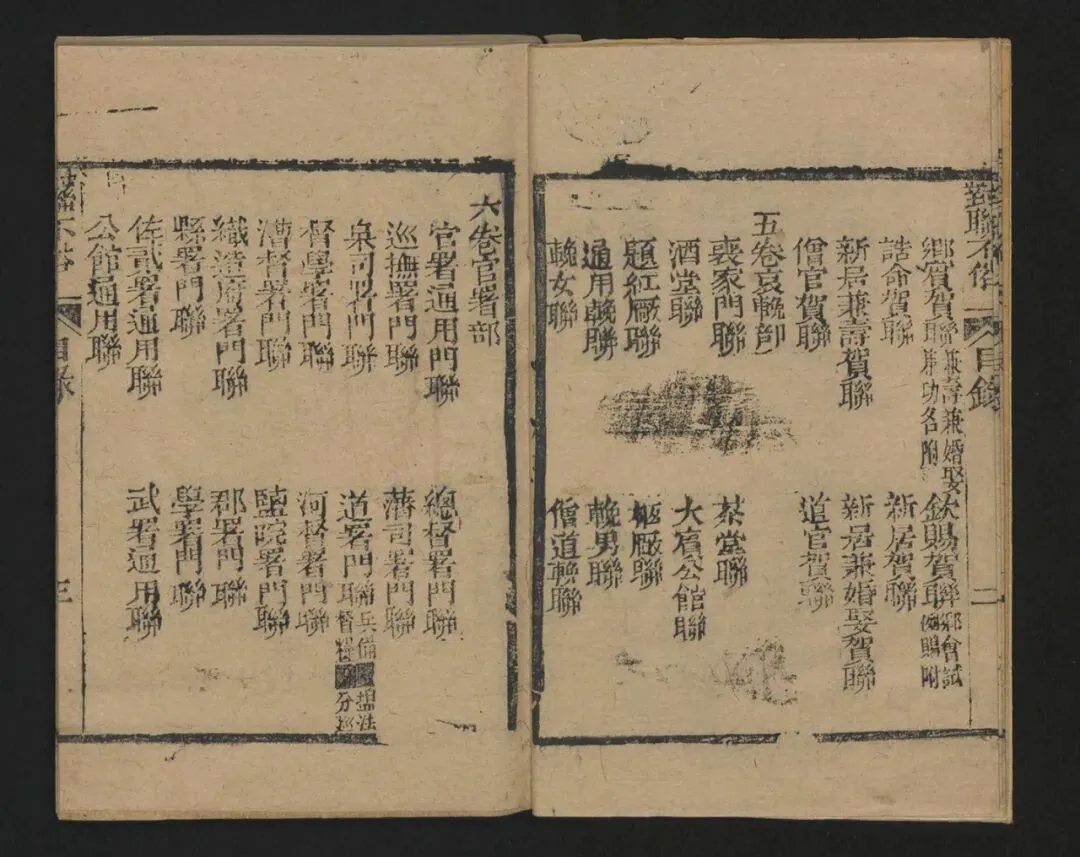 對聯不俗 目錄 二
鄉賓賀聯 兼壽兼婚娶兼功名附 欽賜賀聯 鄉會試 賜附
誥命賀聯 新居賀聯
新居兼壽賀聯 新居兼婚娶賀聯
僧官賀聯 道官賀聯
五卷哀輓部
喪家門聯 茶堂聯
酒堂聯 大賓公館聯
題紅厰聯 柩厰聯
通用輓聯 輓男聯
輓女聯 僧道輓聯
六卷官署部
官署通用門聯 總督署門聯
巡撫署門聯 藩司署門聯
臬司署門聯 道署門聯 兵備 鹽法督糧 分巡
督學署門聯 河督署門聯
漕督署門聯 鹽院署門聯
織造府署門聯 郡署門聯
縣署門聯 學署門聯
佐貳署通用聯 武署通用聯
公館通用聯
聯不俗 目錄 三